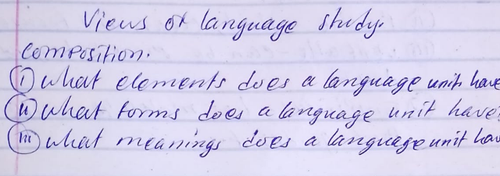 Views of language study.
Composition.
(i) what elements does a language unit have
(ii) what forms does a language unit have
(iii) what meanings does a language unit hav